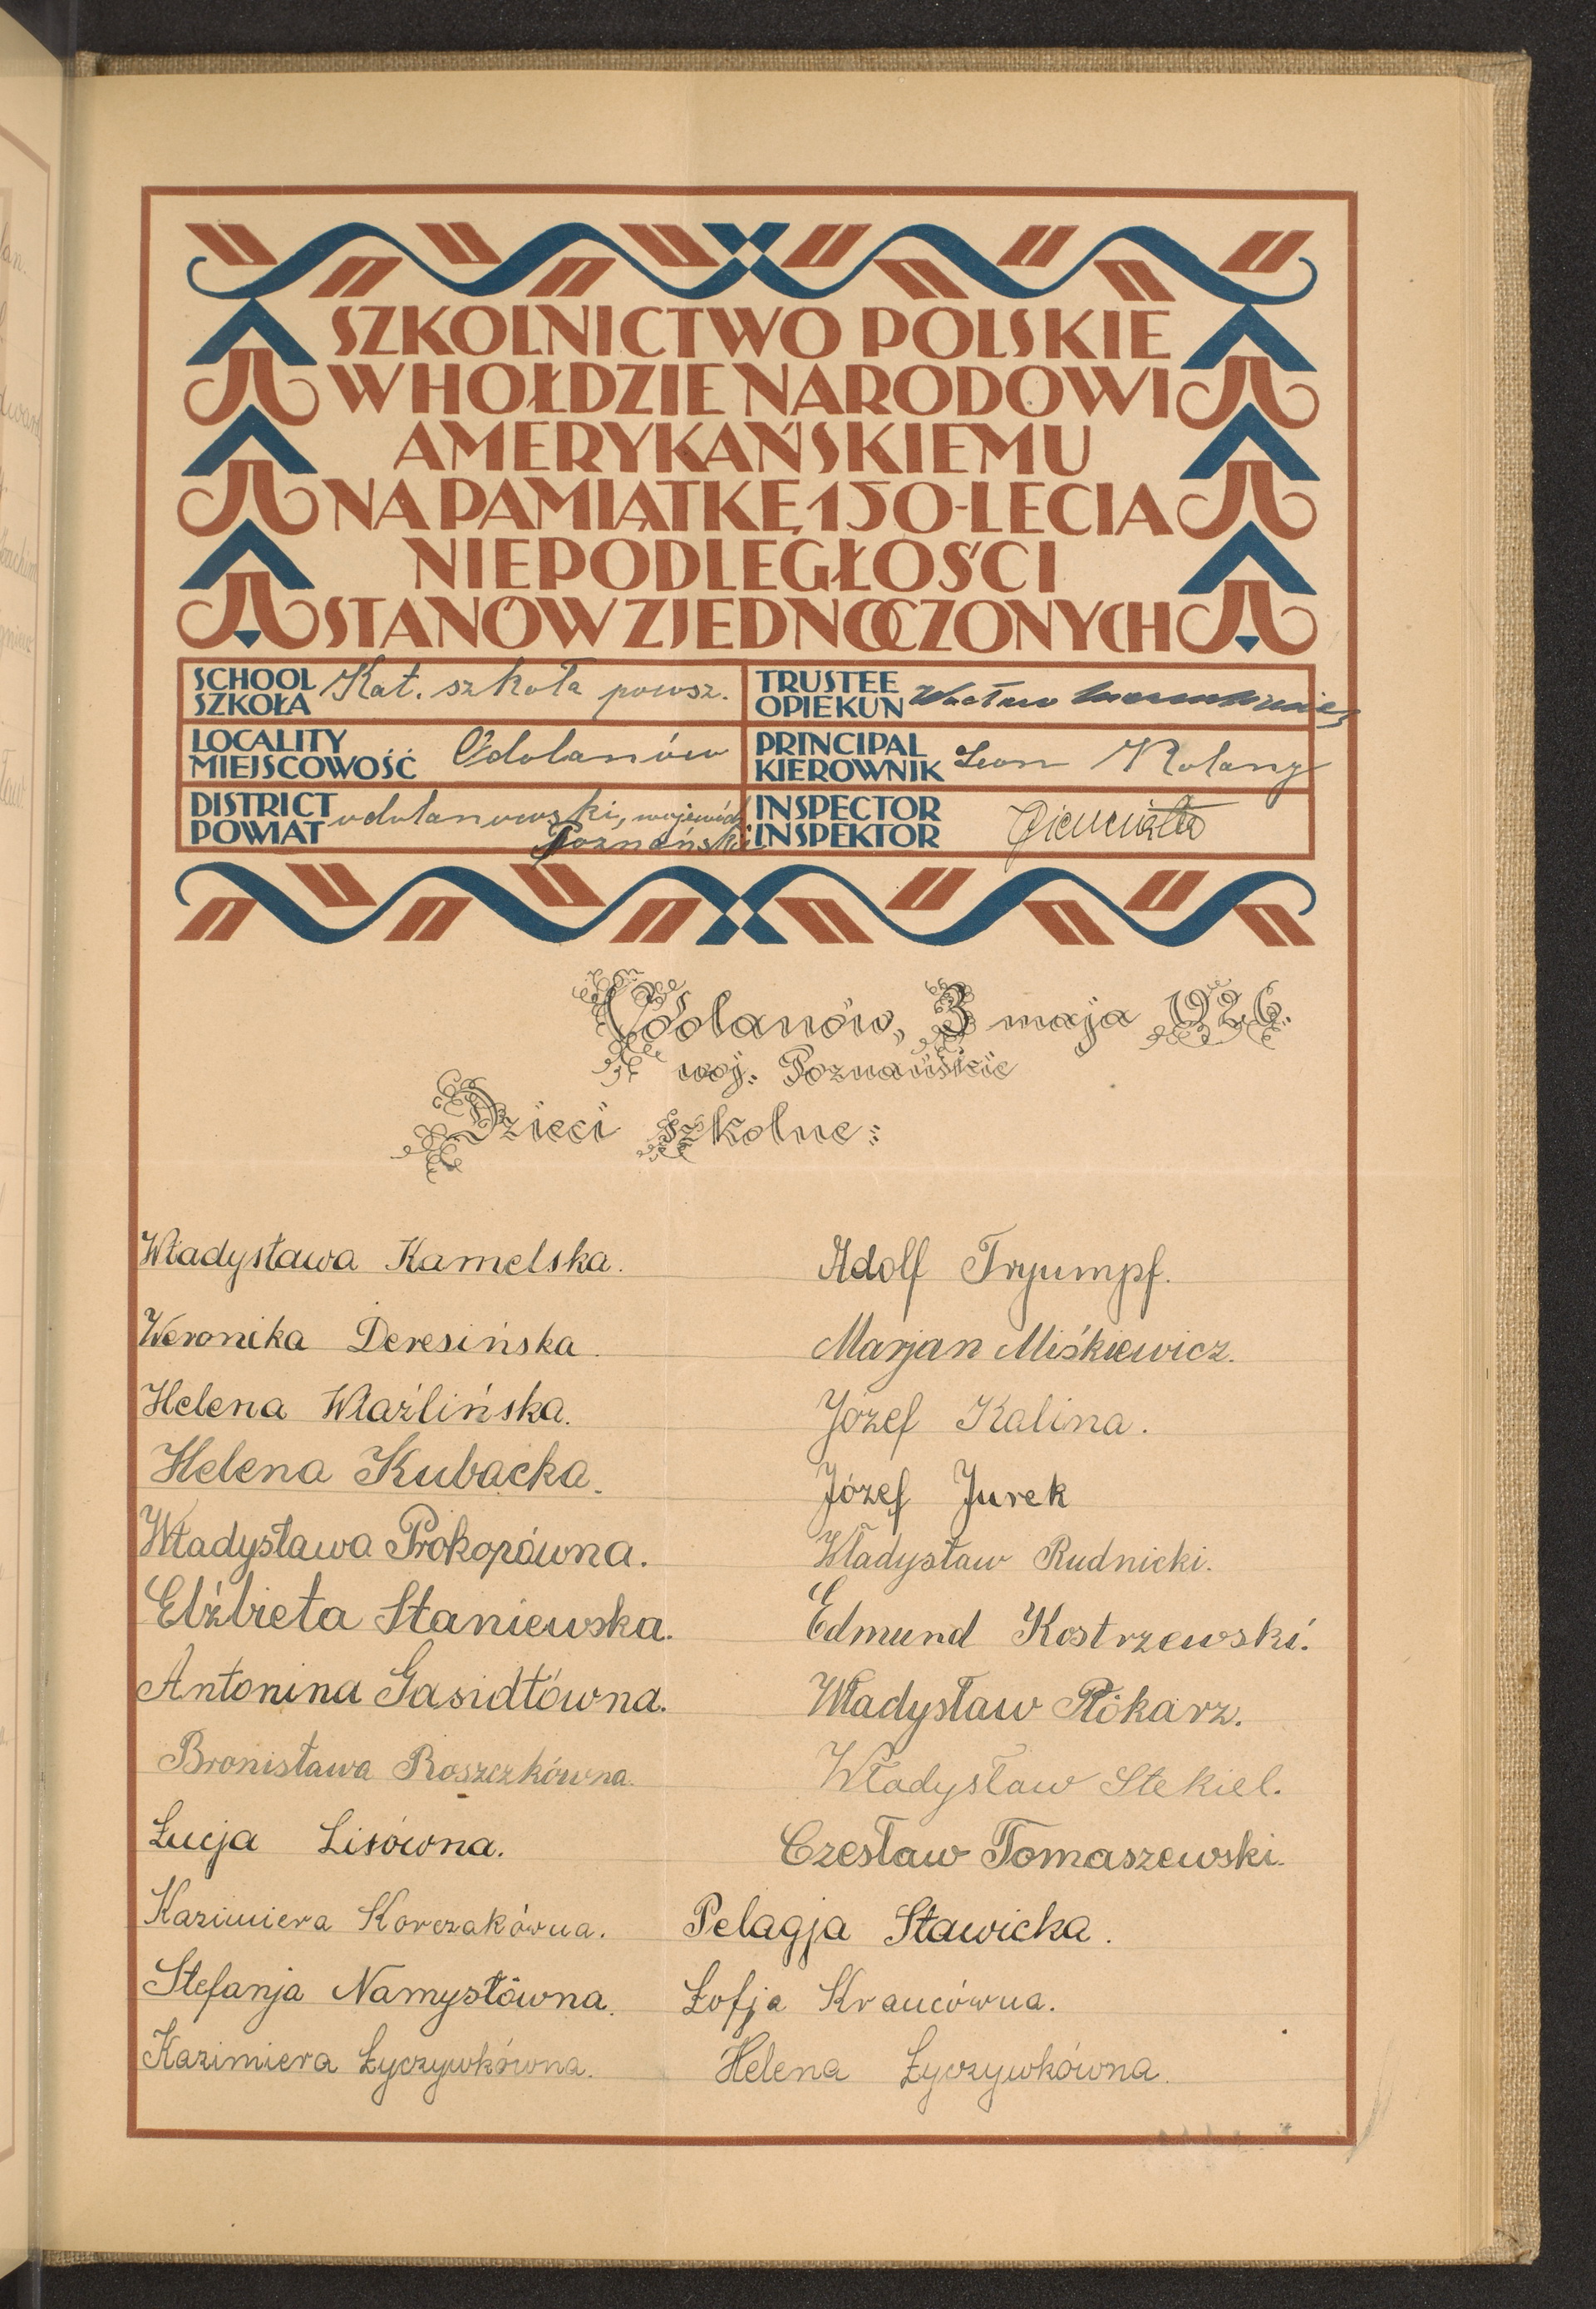 SZKOLNICTWO POLSKIE
W HOŁDZIE NARODOWI
AMERYKAŃSKIEMU
NA PAMIĄTKĘ 150-LECIA
NIEPODLEGŁOŚCI
STANÓW ZJEDNOCZONYCH
SCHOOL
SZKOŁA
Kat. szkoła powsz.
TRUSTEE
OPIEKUN
Wacław
LOCALITY
MIEJSCOWOŚĆ
Odolanów
PRINCIPAL
KIEROWNIK
Leon Rolany
DISTRICT
POWIAT
odolanowski, wojewódz
Poznańskie
INSPECTOR
INSPEKTOR
Odolanów, 3 maja 1926.
woj. Poznańskie
Dzieci szkolne:
Władysława Kamelska.
Weronika Deresińska.
Helena Właźlińska.
Helena Kubacka.
Władysława Prokopówna.
Elżbieta Staniewska.
Antonina Gasidłówna.
Bronisława Roszczkówna.
Łucja Lisówna.
Kazimiera Korczakówna.
Stefanja Namysłówna.
Kazimiera Łyczywkówna.
Adolf Tryumpf.
Marjan Miśkiewicz.
Józef Kalina.
Józef Jurek
Władysław Rudnicki.
Edmund Kostrzewski.
Władysław Płókarz.
Władysław Stekiel.
Czesław Tomaszewski.
Pelagja Stawicka.
Zofja Kraucówna.
Helena Łyczywkówna.